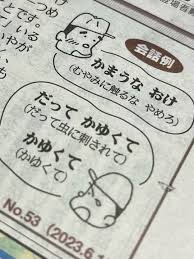 つめ
と」
ている
いやが
会話例
かまうな おけ
(むやみに触るな やめろ)
だって かゆくて
(だって虫に刺されて)
かゆくて
(かゆくて)
No.53 (2023.6.1